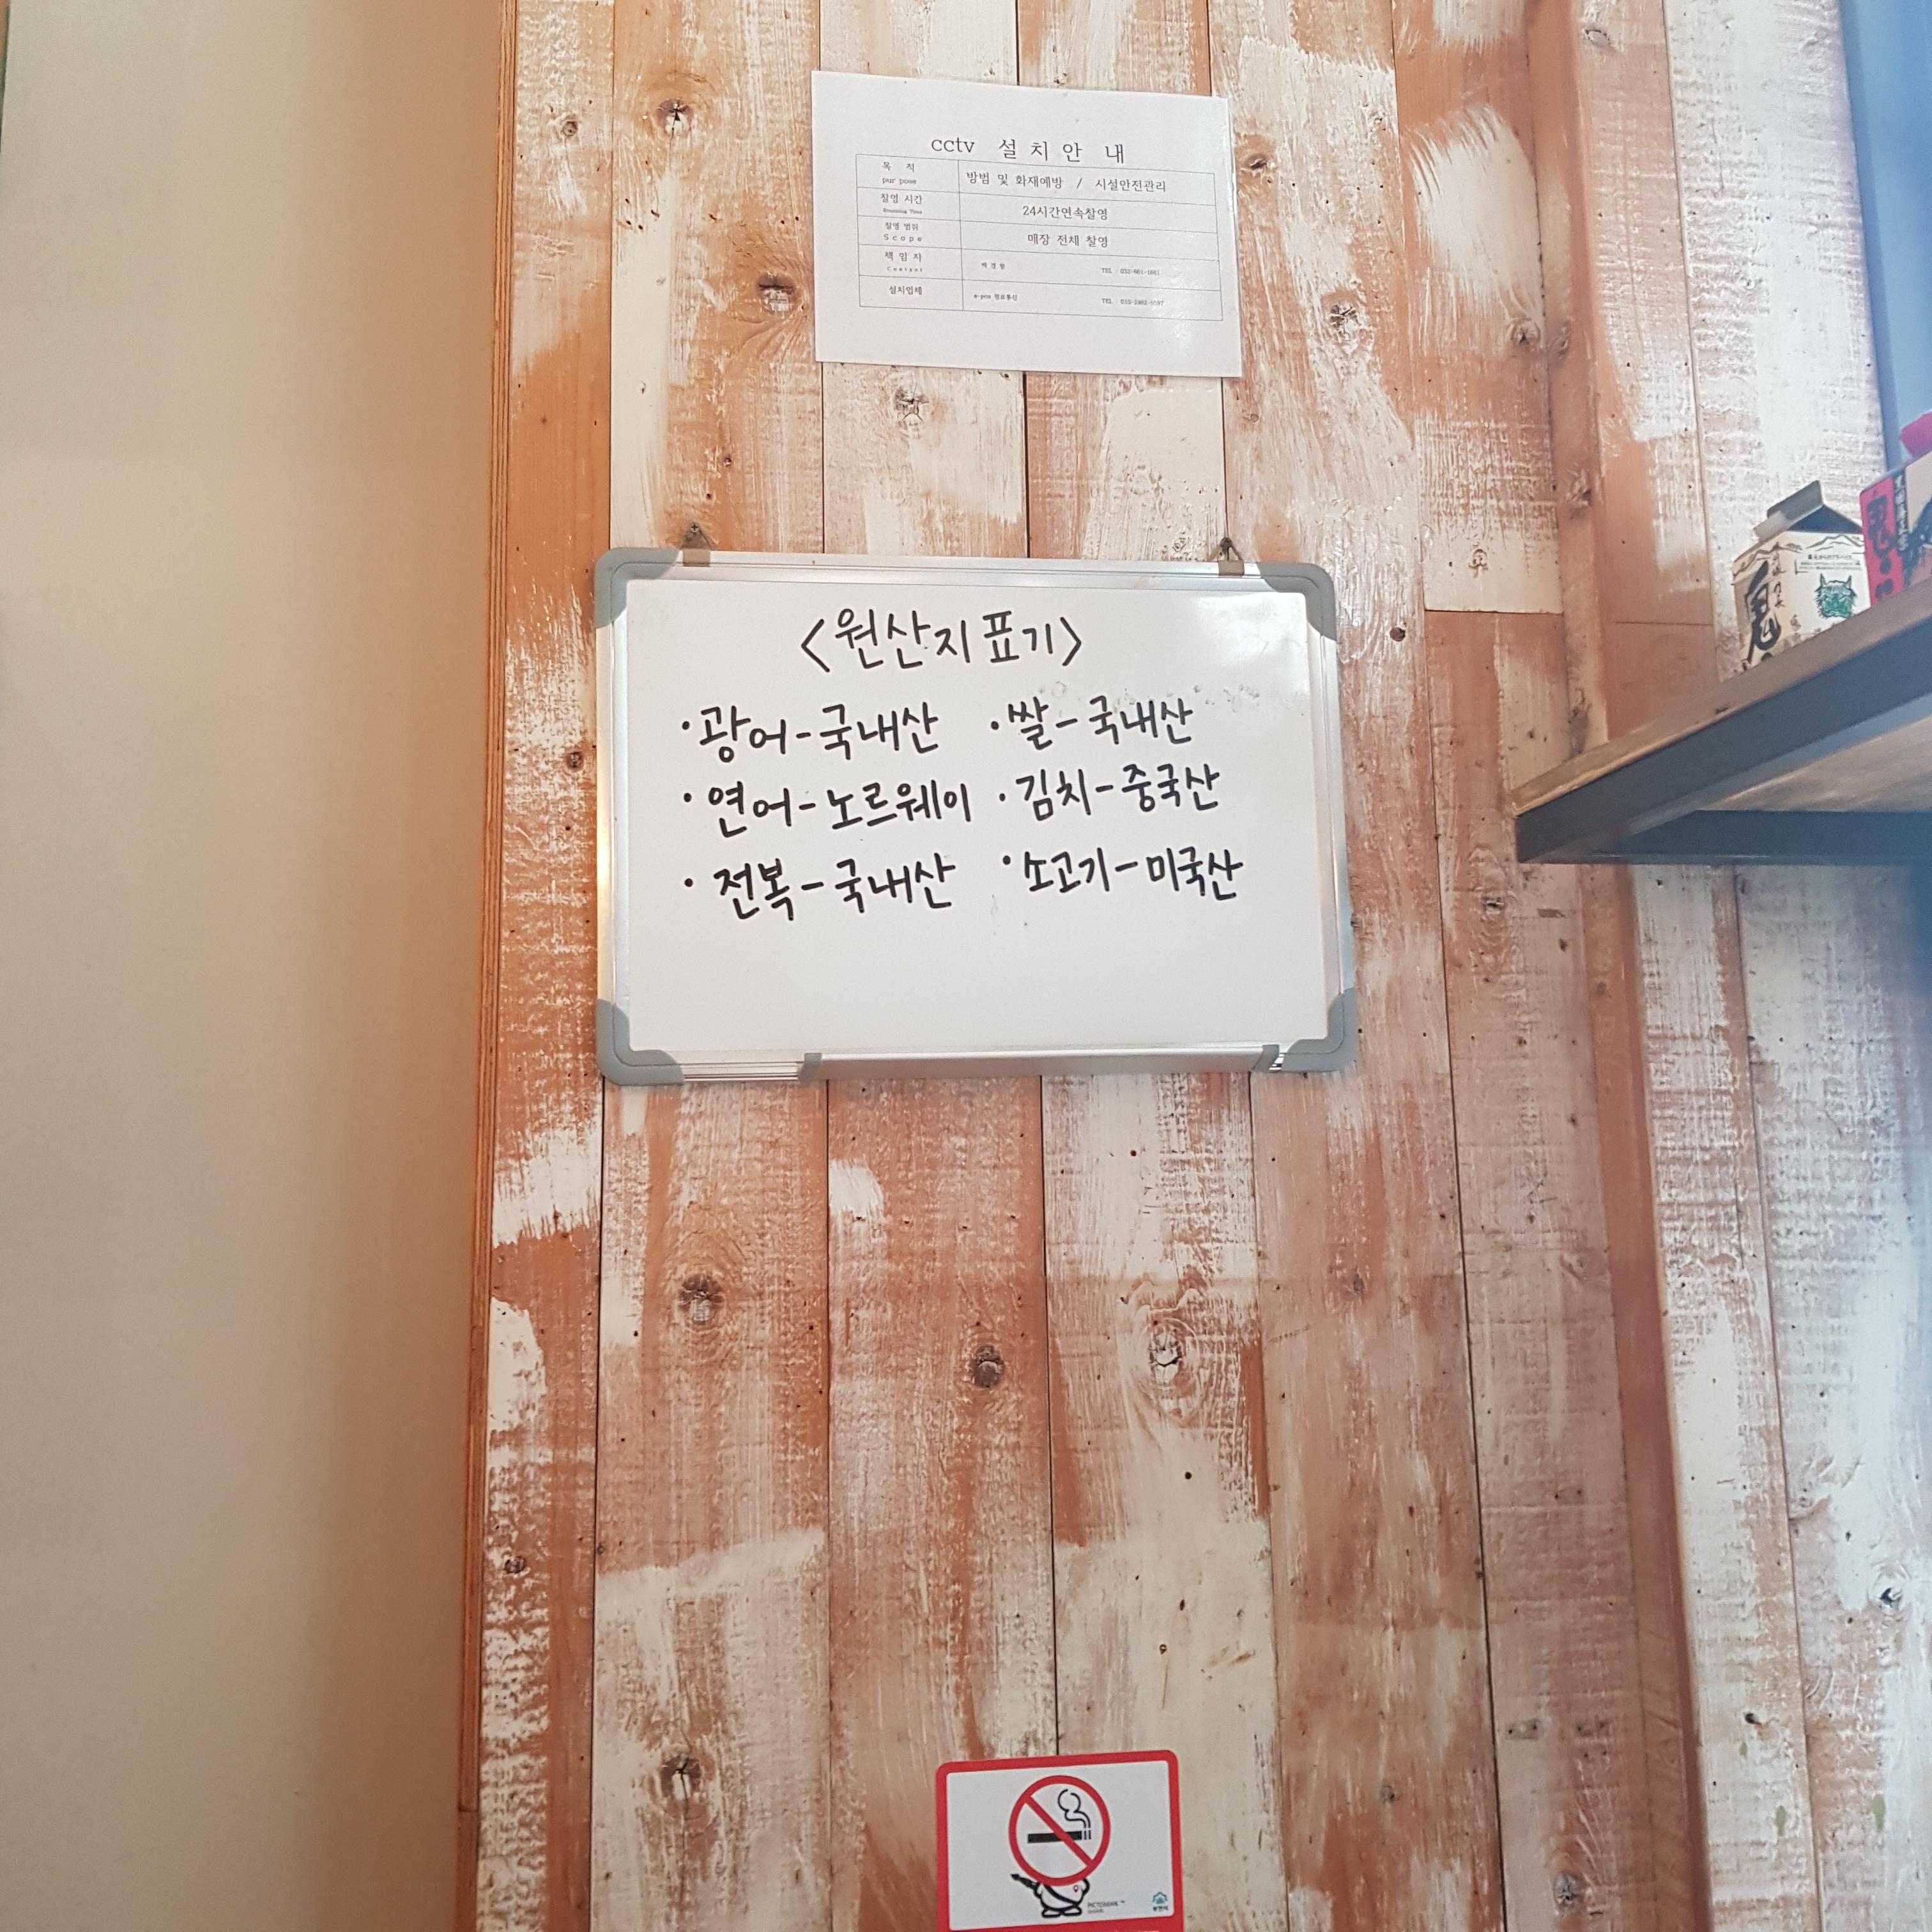 cctv 설 치 안 내
목 적
pur pose
방범 및 화재예방 / 시설안전관리
촬영 시간
24시간연속촬영
촬영 범위
Scope
매장 전체 촬영
책 임 자
TEL
설치업체
e-pos
TEL
<원산지 표기>
·광어-국내산 ·쌀-국내산
·연어-노르웨이 ·김치-중국산
·전복-국내산 ·소고기-미국산
鬼